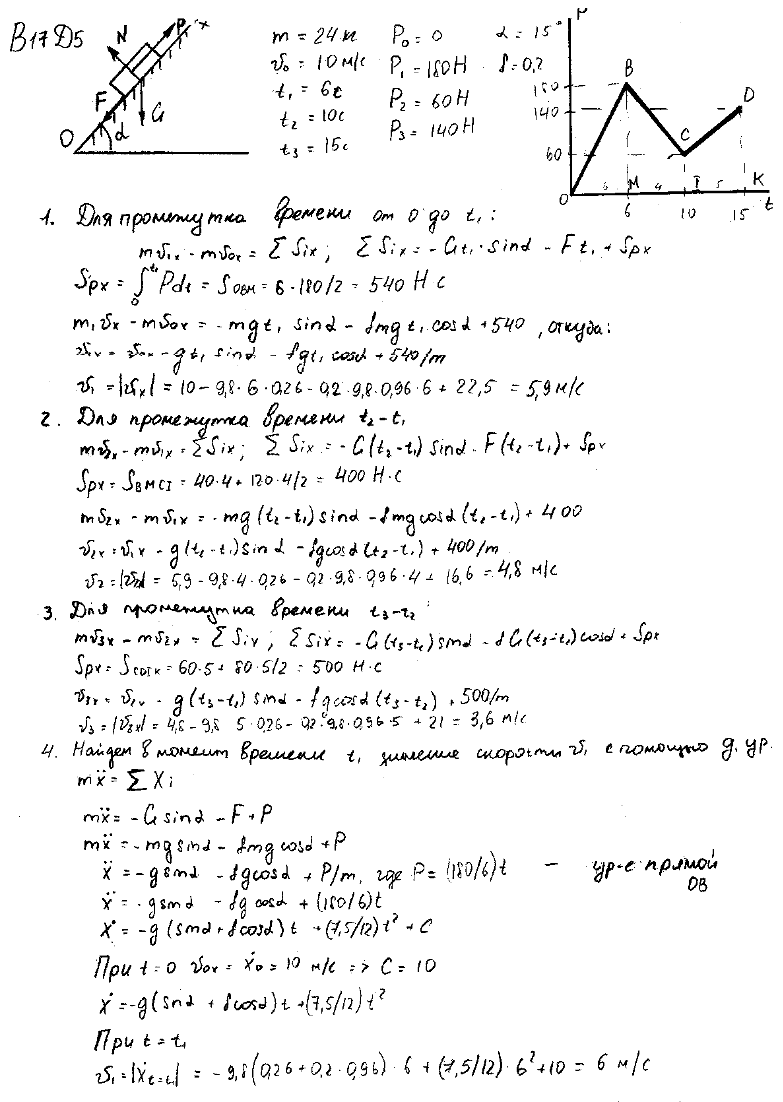 В17Д5
N P x
F G
O α
m = 24 кг P₀ = 0 α = 15°
v₀ = 10 м/с P₁ = 180 Н f = 0,2
t₁ = 6с P₂ = 60 Н
t₂ = 10с P₃ = 140 Н
t₃ = 15с
P
180 B
140 D
60 C
6 M 4 I 5 K
O 6 10 15 t
1. Для промежутка времени от 0 до t₁:
mv₁ₓ - mv₀ₓ = ΣSiₓ; ΣSiₓ = -Gt₁·sinα - Ft₁ + Spₓ
Spₓ = ∫₀^t₁ Pdt = Sовм = 6·180/2 = 540 Н с
m₁vₓ - mv₀ₓ = -mgt₁ sinα - fmgt₁ cosα + 540, откуда:
v₁ₓ = v₀ₓ - gt₁ sinα - fgt₁ cosα + 540/m
v₁ = |v₁ₓ| = 10 - 9,8·6·0,26 - 0,2·9,8·0,96·6 + 22,5 = 5,9 м/с
2. Для промежутка времени t₂-t₁
mv₂ₓ - mv₁ₓ = ΣSiₓ; ΣSiₓ = -G(t₂-t₁) sinα - F(t₂-t₁) + Spₓ
Spₓ = SвмсI = 40·4 + 120·4/2 = 400 Н·с
mv₂ₓ - mv₁ₓ = -mg(t₂-t₁) sinα - fmgcosα(t₂-t₁) + 400
v₂ₓ = v₁ₓ - g(t₂-t₁) sinα - fgcosα(t₂-t₁) + 400/m
v₂ = |v₂ₓ| = 5,9 - 9,8·4·0,26 - 0,2·9,8·0,96·4 + 16,6 = 4,8 м/с
3. Для промежутка времени t₃-t₂:
mv₃ₓ - mv₂ₓ = ΣSiₓ; ΣSiₓ = -G(t₃-t₂) sinα - fG(t₃-t₂) cosα + Spₓ
Spₓ = SсDIк = 60·5 + 80·5/2 = 500 Н·с
v₃ₓ = v₂ₓ - g(t₃-t₂) sinα - fgcosα(t₃-t₂) + 500/m
v₃ = |v₃ₓ| = 4,8 - 9,8 5·0,26 - 0,2·9,8·0,96·5 + 21 = 3,6 м/с
4. Найдем в момент времени t₁ значение скорости v₁ с помощью д. ур.
mẍ = ΣXi
mẍ = -G sinα - F + P
mẍ = -mg sinα - fmg cosα + P
ẍ = -g sinα - fgcosα + P/m, где P = (180/6)t — ур-е прямой ОВ
ẍ = -g sinα - fg cosα + (180/6)t
ẋ = -g (sinα + fcosα)t + (7,5/12)t² + C
При t = 0 v₀ₓ = ẋ₀ = 10 м/с => C = 10
ẋ = -g(sinα + fcosα)t + (7,5/12)t²
При t = t₁
v₁ = |ẋt=t₁| = -9,8(0,26+0,2·0,96)·6 + (7,5/12)·6² + 10 = 6 м/с